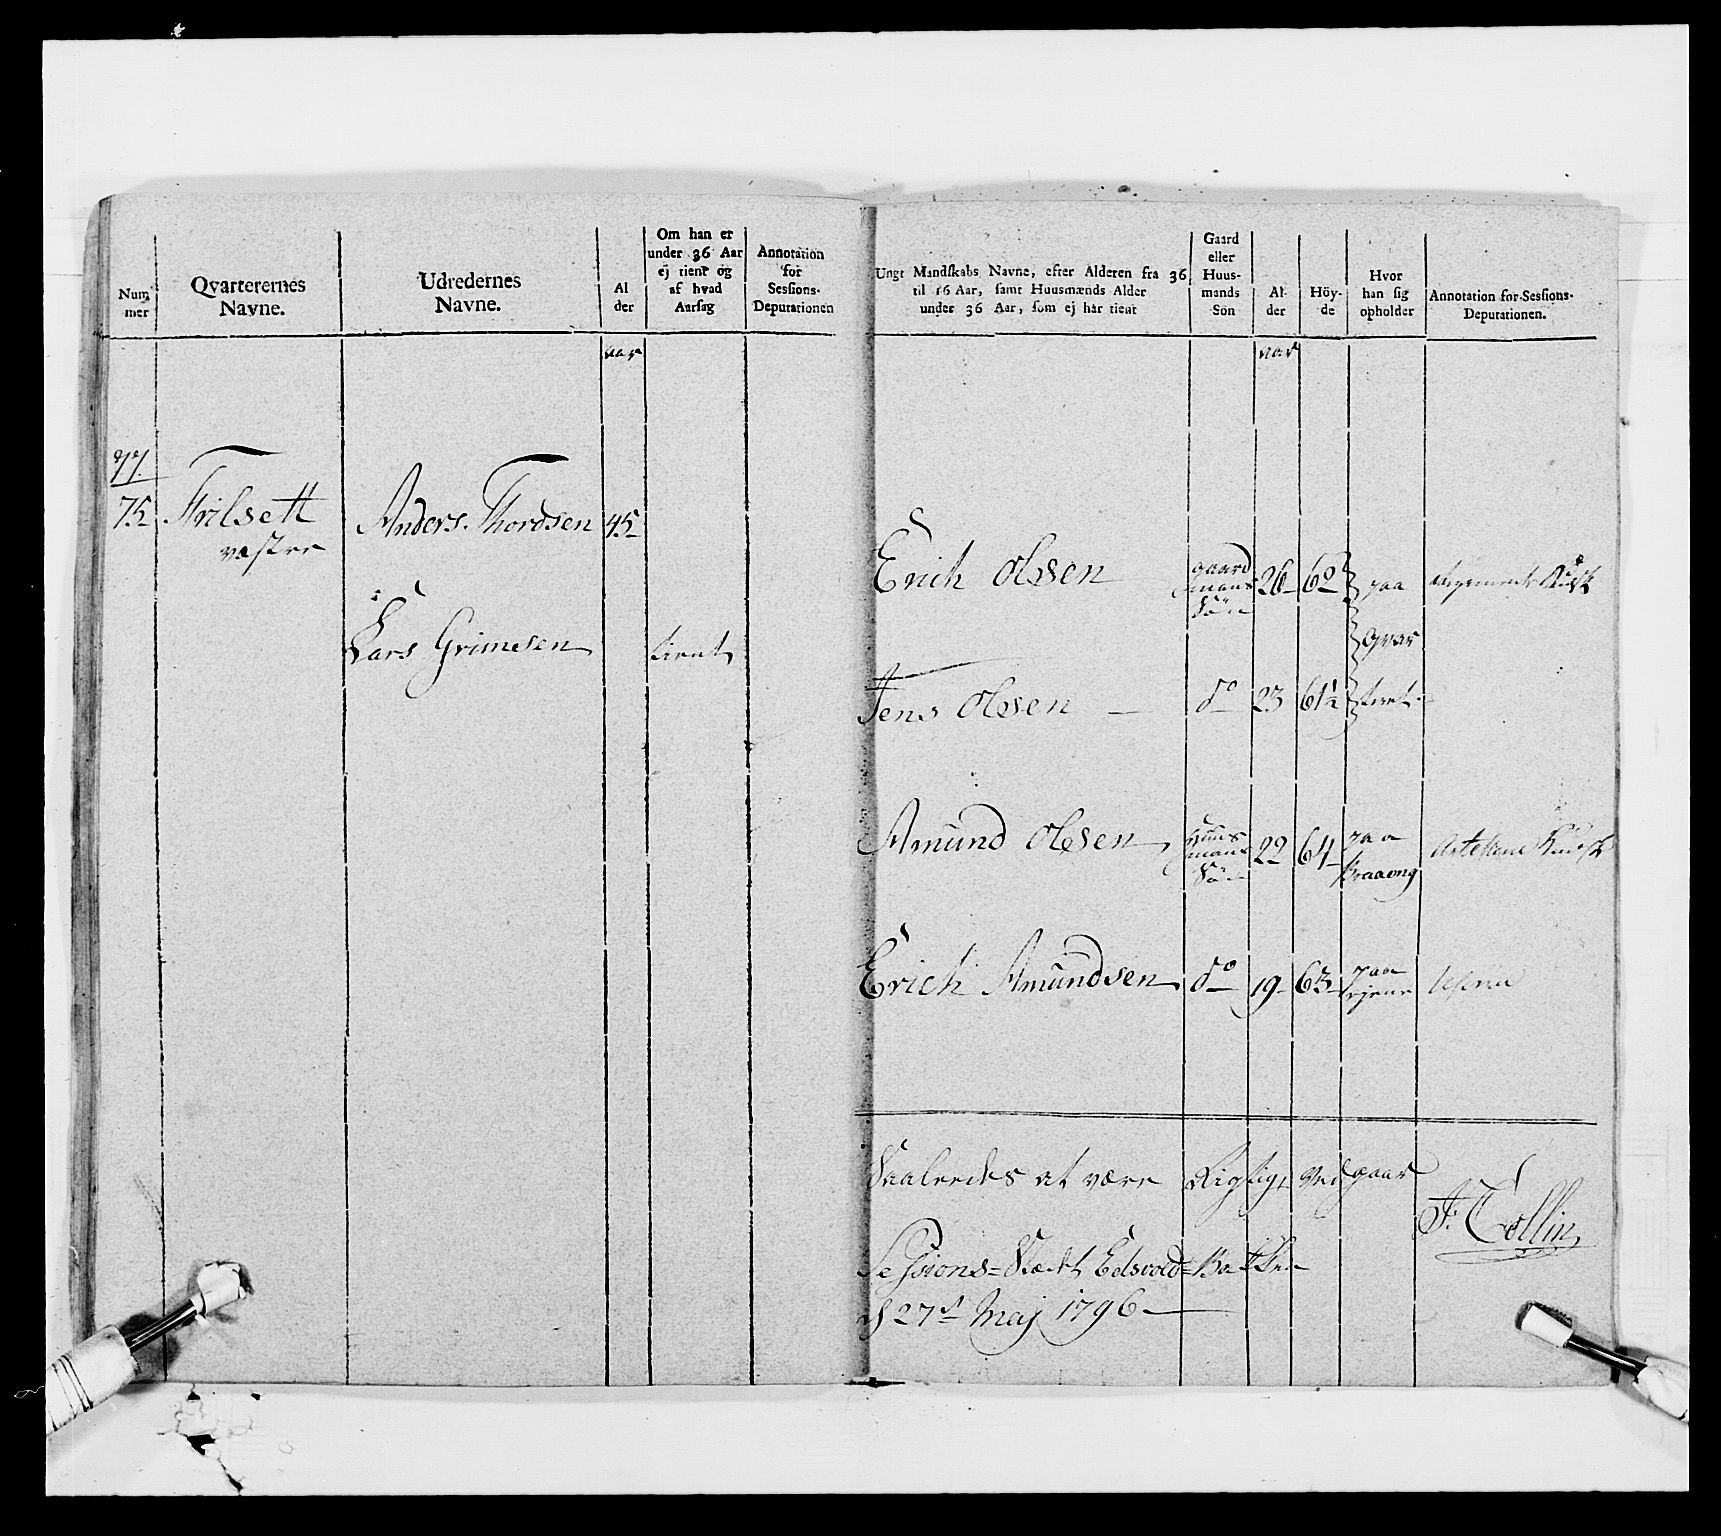 Num
mer
Qvarterernes
Navne.
Udredernes
Navne.
Al
der
Om han er
under 36 Aar
ej tient og
af hvad
Aarsag
Annotation
for
Sessions-
Deputationen
aar
77.
75
Trilsett
vestre
Anders Thordsen 45
Lars Grimesen
tient
Ungt Mandskabs Navne, efter Alderen fra 36
til 16 Aar, samt Huusmænds Alder
under 36 Aar, som ej har tient
Gaard
eller
Huus-
mands
Søn
Al-
der
Höy-
de
Hvor
han sig
opholder
Annotation for Sessions-
Deputationen.
aar
Erich Olssen
gaard
mans
Søn
26 60
paa
Qvar
teret
Jens Olssen — do 23 61½
Amund Olssen
Huus
mans
Søn
22 64
paa
Erich Amundsen do 19 63
paa
Saaledes at være Rigtig, Vedgaar
F: Collin
Sessions-Stædet Edsvold-Bakken
d 27d Maj 1796